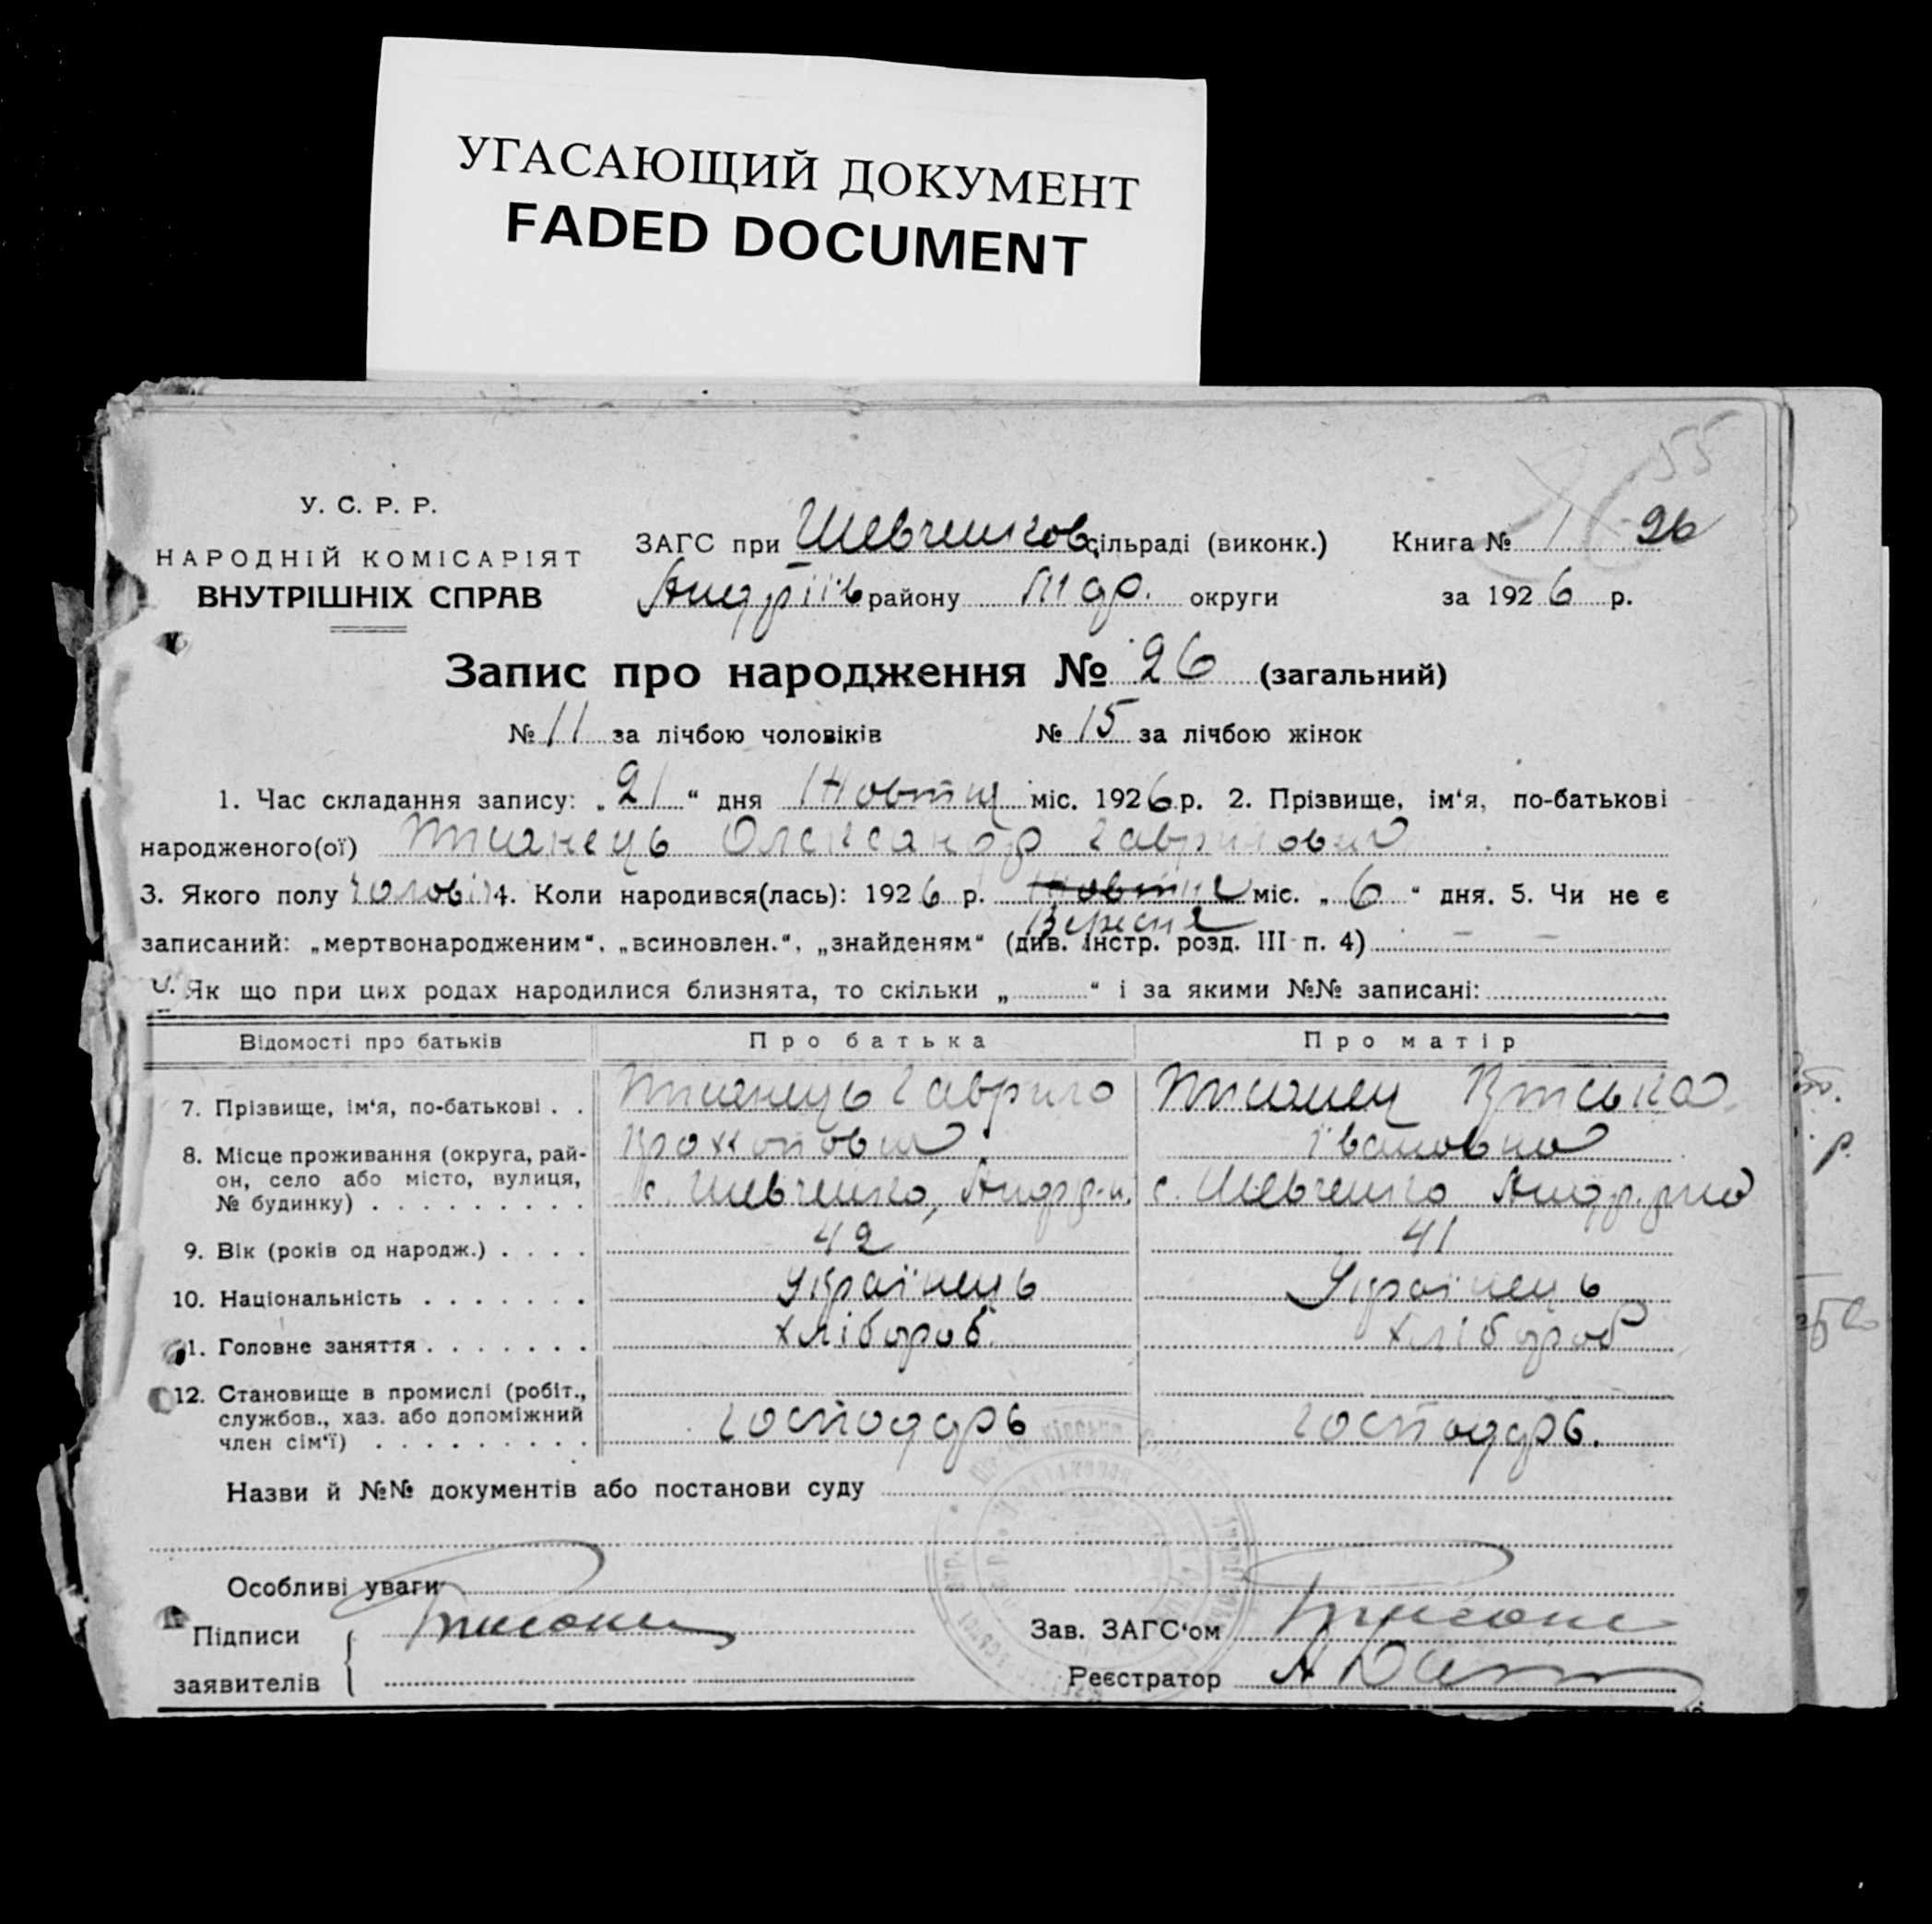 УГАСАЮЩИЙ ДОКУМЕНТ
FADED DOCUMENT
55
У. С. Р. Р.
НАРОДНІЙ КОМІСАРІЯТ
ВНУТРІШНІХ СПРАВ
ЗАГС при Шевченков сільраді (виконк.) Книга № 1 26
Андріїв району округи за 1926 р.
Запис про народження № 26 (загальний)
№ 11 за лічбою чоловіків № 15 за лічбою жінок
1. Час складання запису: „21“ дня Жовтня міс. 1926 р. 2. Прізвище, ім‘я, по-батькові
народженого(ої) Олександр Гаврилович
3. Якого полу чолові 4. Коли народився(лась): 1926 р. Жовтня міс. „6“ дня. 5. Чи не є
Вересня
записаний: „мертвонародженим“, „всиновлен.“, „знайденям“ (див. інстр. розд. III п. 4) – –
6. Як що при цих родах народилися близнята, то скільки „ “ і за якими №№ записані:
Відомості про батьків Про батька Про матір
7. Прізвище, ім‘я, по-батькові . . Гаврило
Івановна
8. Місце проживання (округа, рай-
он, село або місто, вулиця, с. Шевченко, Андр р-н. с. Шевченко Андр. р-на
№ будинку) . . . . . . . . .
9. Вік (років од народж.) . . . . 42 41
10. Національність . . . . . . . Українець Українець
11. Головне заняття . . . . . . . хлібороб. хлібороб
12. Становище в промислі (робіт.,
службов., хаз. або допоміжний
член сім‘ї) . . . . . . . . . господарь господарь.
Назви й №№ документів або постанови суду
Особливі уваги
Підписи
заявителів
Зав. ЗАГС‘ом
Реєстратор